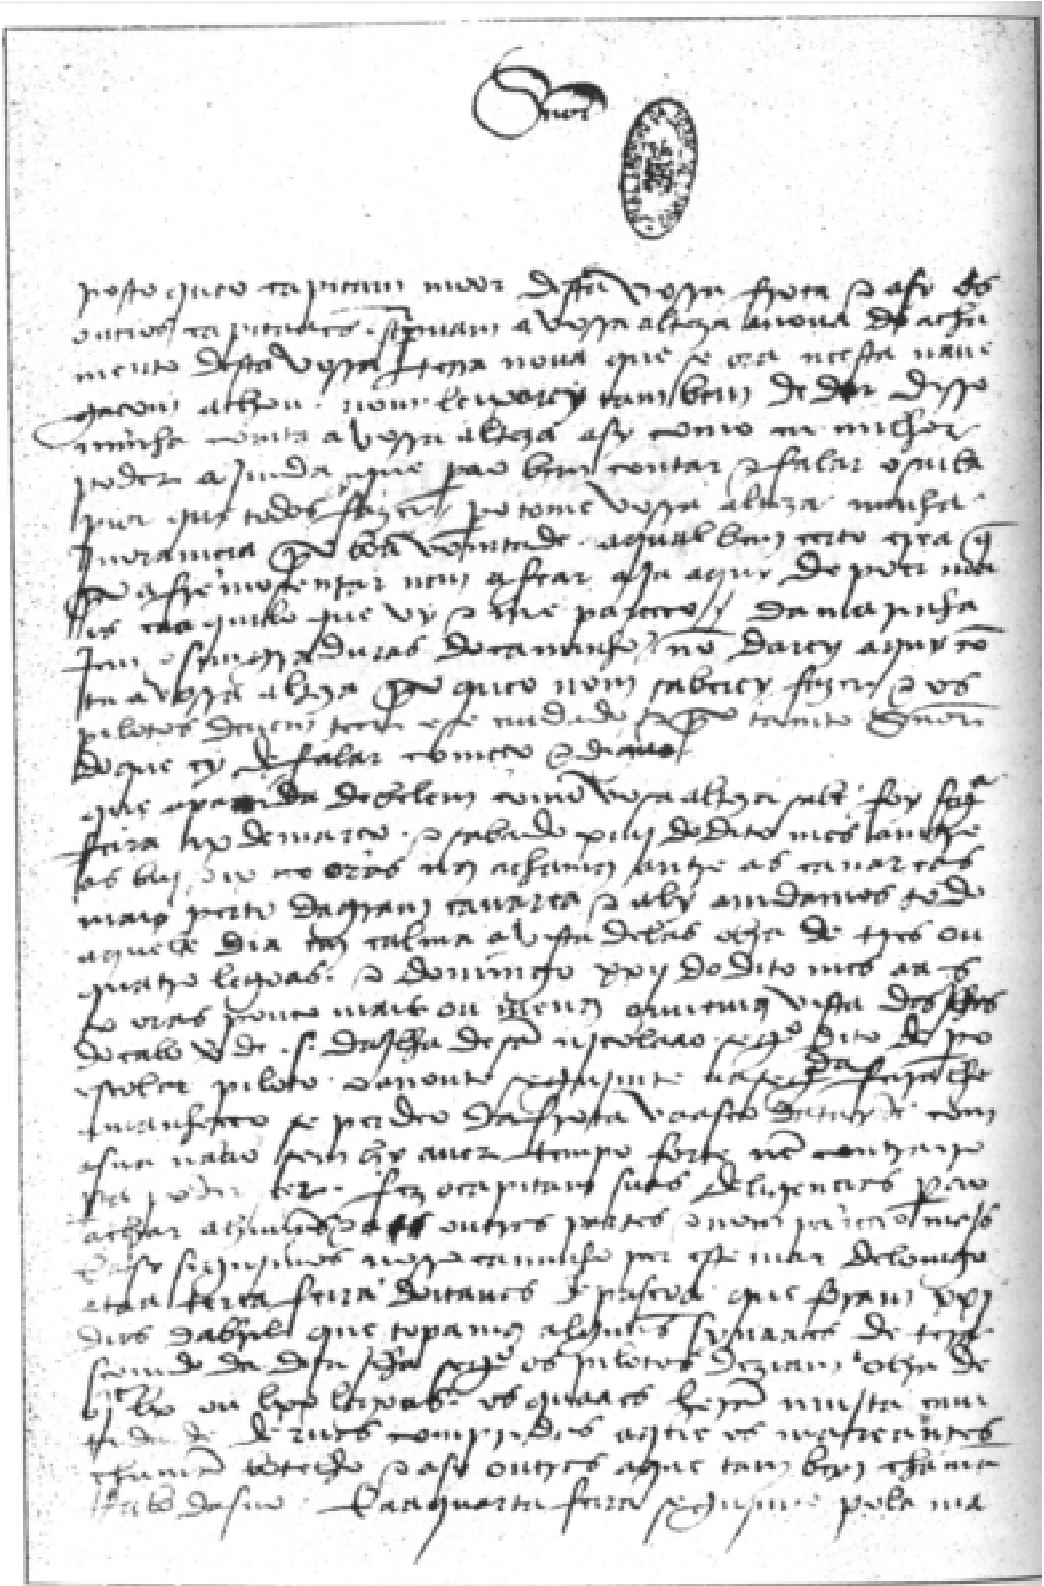 Snor
posto queo capitam moor desta vossa frota e asy os
outros capitaães spreuam a vossa alteza a noua do acha
mento desta vossa terra noua que se ora neesta naue
gaçom achou. nom leixarey tambem de dar disso
minha comta a vossa alteza asy como eu milhor
poder ajmda que pera o bem contar e falar o saiba
pior que todos fazer. pero tome vossa alteza minha
jnoramçia por boa vomtade. aqual bem certo crea q̃
por afremosentar nem afear aja aquy de poer mais
ca aquilo que vy e me pareçeo // da marinhajem
e simgraduras do caminho nõ darey aquy cõ
ta a vossa alteza porque o nom saberey fazer e os
pilotos deuem teer ese cuidado e por tanto Snor
do que ey de falar começo e diguo
que a partida de belem como vosa alteza sabe foy segª
feira ix de março. e sabado xiiij do dito mes amtre
as biij e ix oras nos achamos antre as canareas
mais perto da gram canarea e aly amdamos todo
aquele dia em calma a vista delas obra de tres ou
quatro legoas. e domingo xxij do dito mes aas x
oras pouco mais ou menos ouuemos vista das jlhas
do cabo verde .s. da jlha de sã njcolaao segº dito de pº
escolar piloto. e a noute segujmte aa segda feira lhe
amanheçeo se perdeo da frota vaasco datayde com
a sua naao sem hy auer tempo forte nẽ contrairo
pera poder seer. fez o capitam suas deligençias pera o
achar a huũas e a outras partes e nom pareçeo majs
E asy segujmos nosso caminho per este mar delomgo
ataa terça feira doitauas de pascoa que foram xxj
dias dabril que topamos alguũs synaaes de tera
seendo da dita jlha segº os pilotos deziam obra de
bjc lx ou lxx legoas. os quaaes herã mujta cam
tidade deruas compridas aque os mareantes
chamã botelho e asy outras aque tambem chamã
rrabo dasno. E aaquarta feira segujmte pola ma